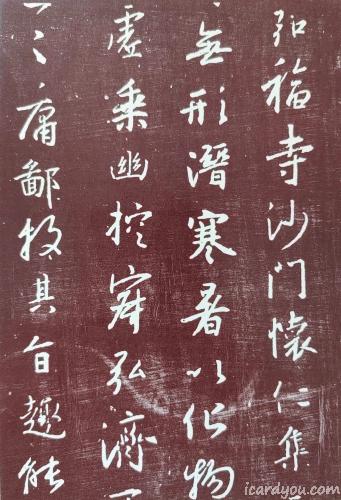 弘福寺沙門懷仁集
無形潛寒暑以化物
虛乘幽控寂弘濟
庸鄙投其旨趣能
icardyou.com